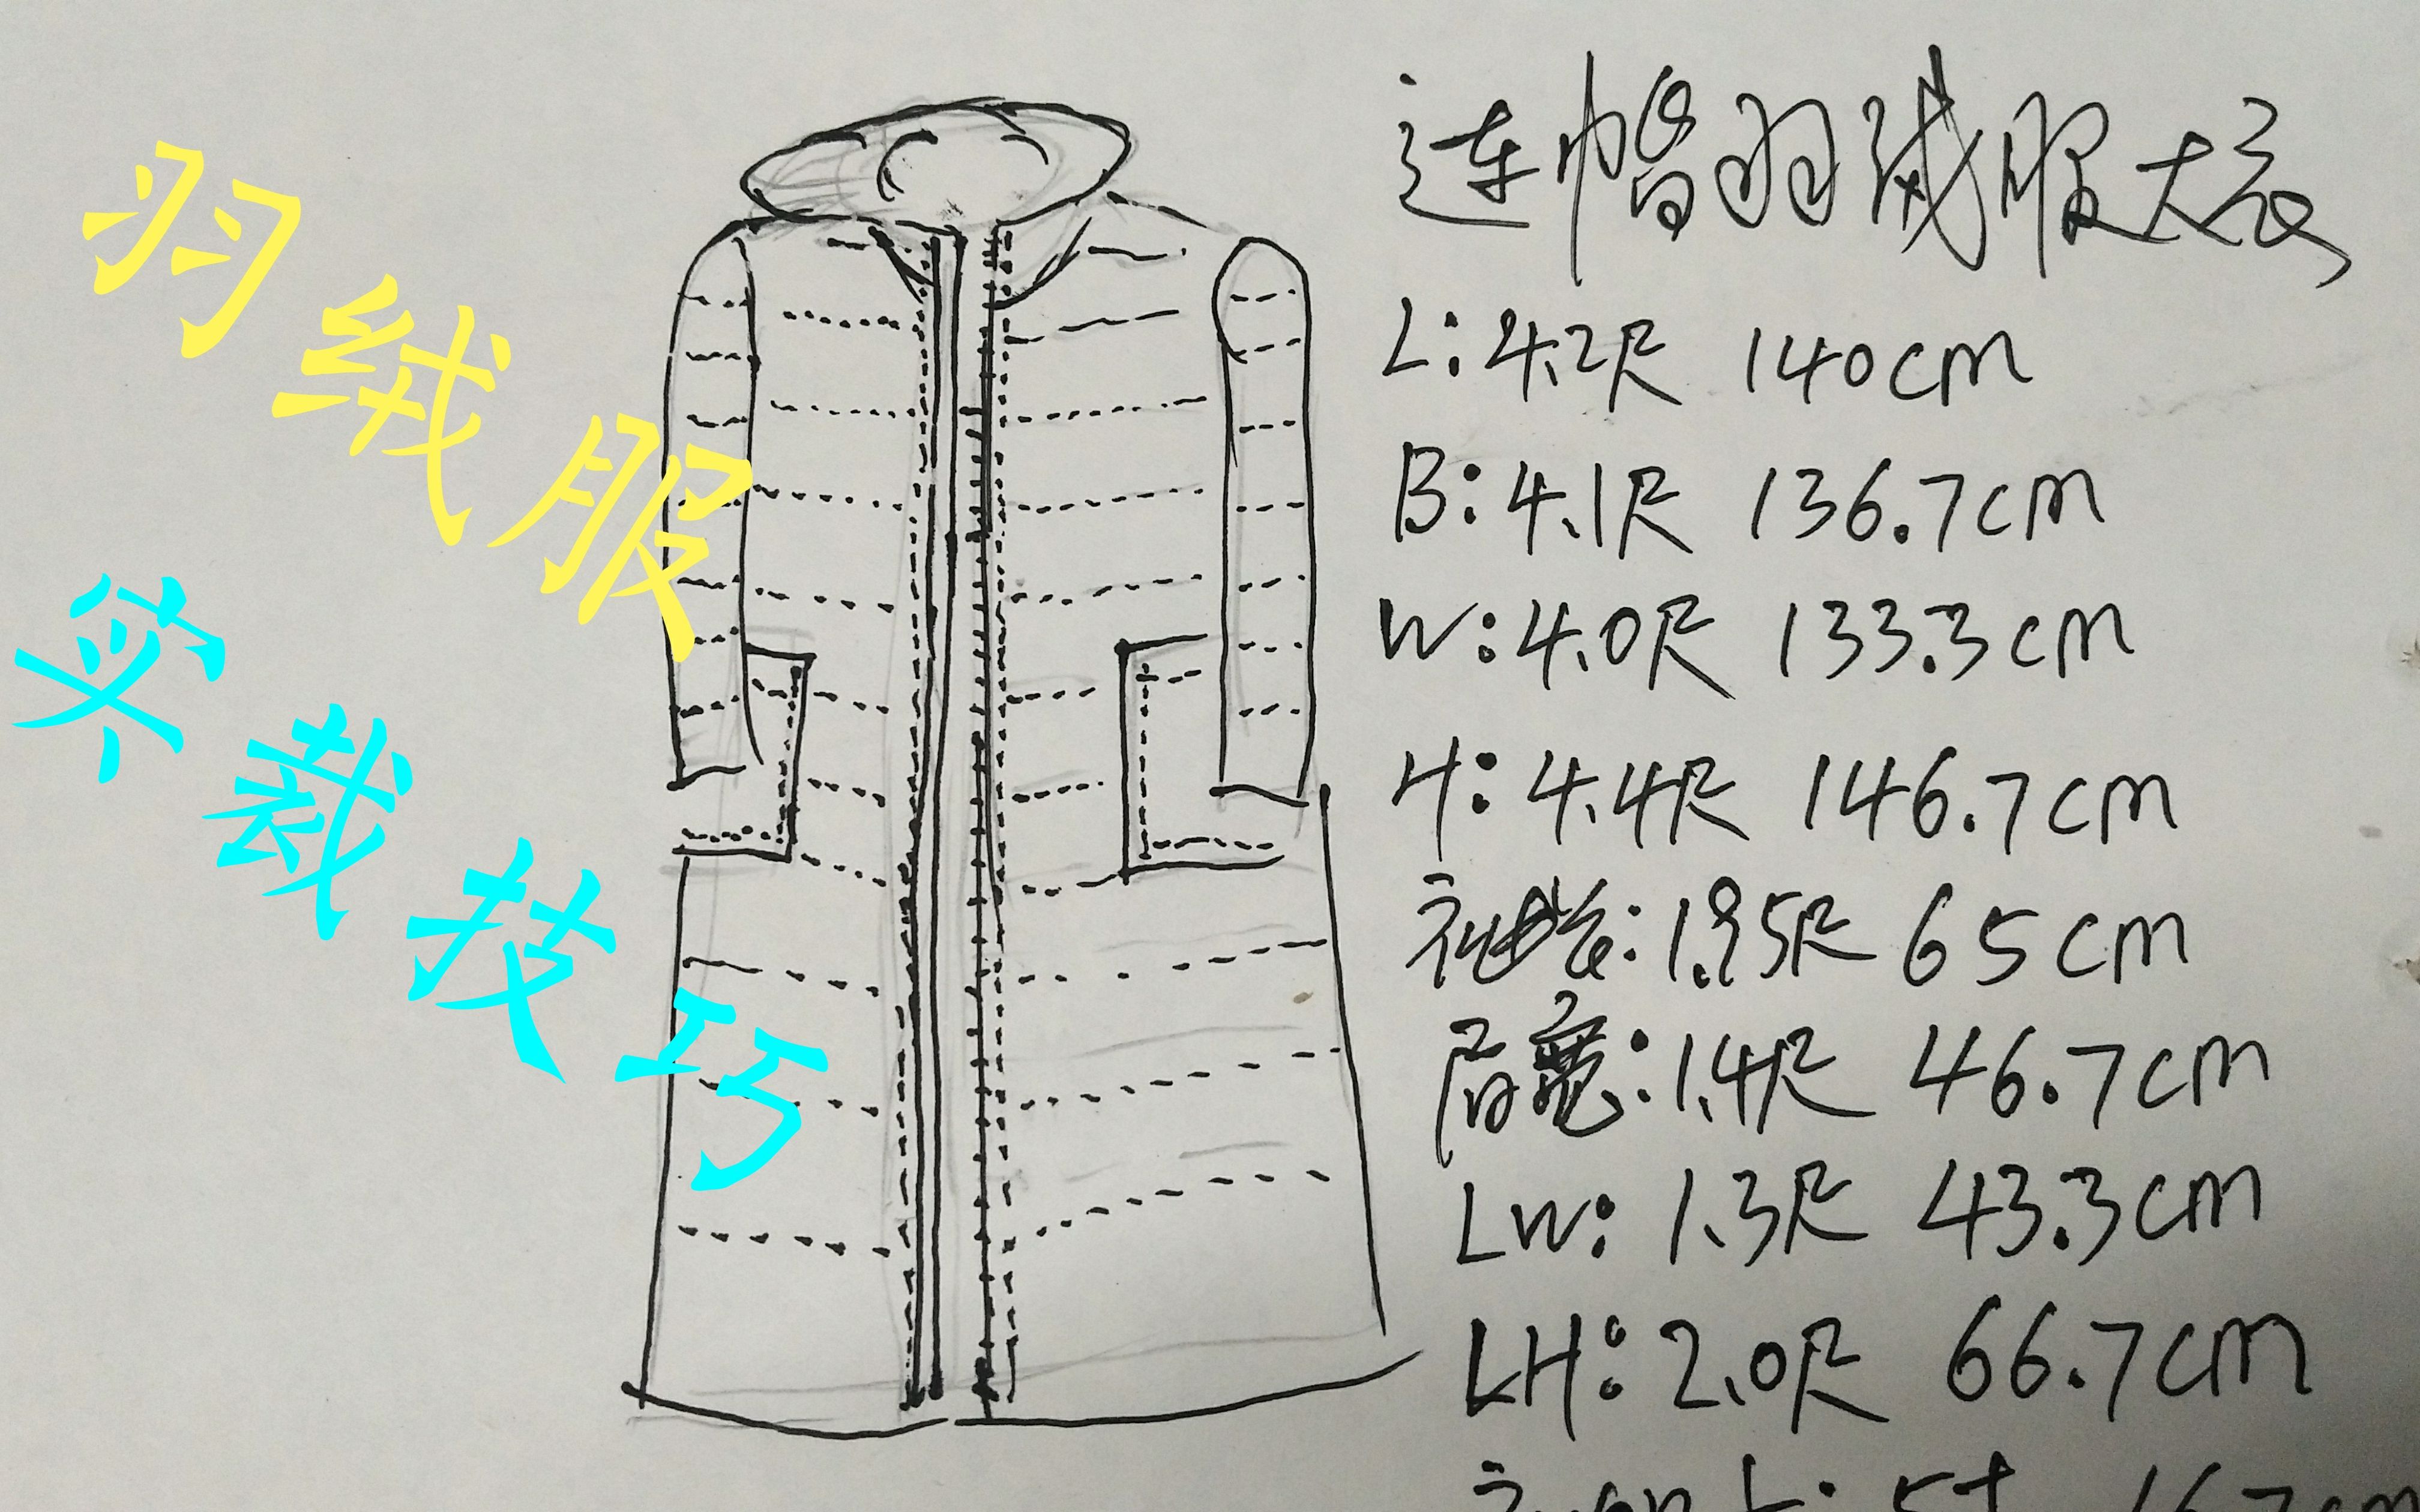 羽绒服
实裁技巧
连帽羽绒服大衣
L:4.2尺 140cm
B:4.1尺 136.7cm
W:4.0尺 133.3cm
H:4.4尺 146.7cm
袖长:1.95尺 65cm
肩宽:1.4尺 46.7cm
LW:1.3尺 43.3cm
LH:2.0尺 66.7cm